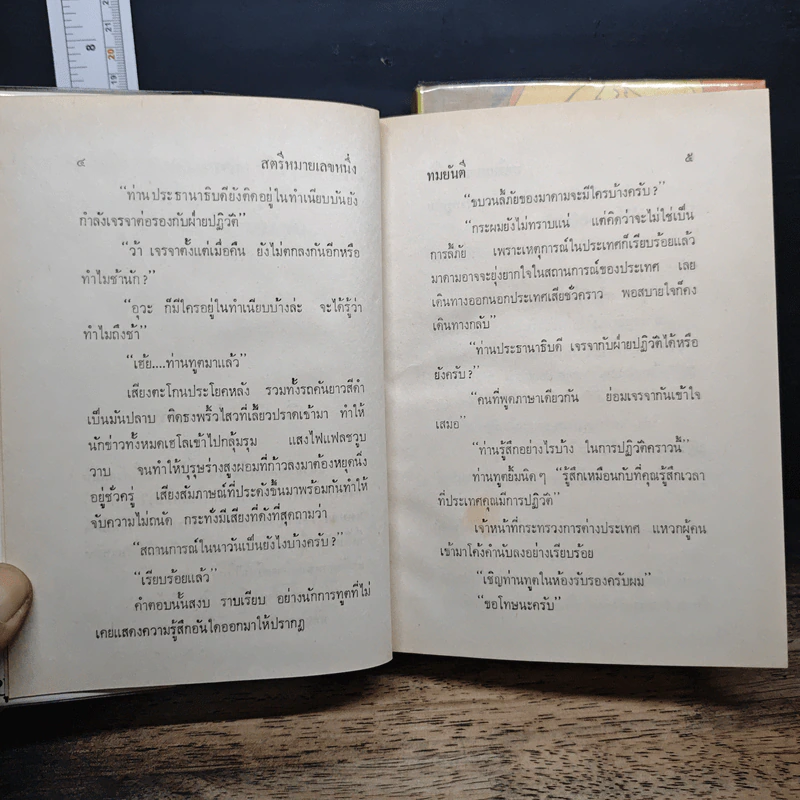 8
21
20
19
๔ สตรีหมายเลขหนึ่ง
“ท่านประธานาธิบดียังติดอยู่ในทำเนียบบันยัง
กำลังเจรจาต่อรองกับฝ่ายปฏิวัติ”
“ว้า เจรจาตั้งแต่เมื่อคืน ยังไม่ตกลงกันอีกหรือ
ทำไมช้านัก?”
“อุวะ ก็มีใครอยู่ในทำเนียบบ้างล่ะ จะได้รู้ว่า
ทำไมถึงช้า”
“เฮ้ย....ท่านทูตมาแล้ว”
เสียงตะโกนประโยคหลัง รวมทั้งรถคันยาวสีดำ
เป็นมันปลาบ ติดธงพริ้วไสวที่เลี้ยวปราดเข้ามา ทำให้
นักข่าวทั้งหมดเฮโลเข้าไปกลุ้มรุม แสงไฟแฟลชวูบ
วาบ จนทำให้บุรุษร่างสูงผอมที่ก้าวลงมาต้องหยุดนิ่ง
อยู่ชั่วครู่ เสียงสัมภาษณ์ที่ประดังขึ้นมาพร้อมกันทำให้
จับความไม่ถนัด กระทั่งมีเสียงที่ดังที่สุดถามว่า
“สถานการณ์ในนาวันเป็นยังไงบ้างครับ?”
“เรียบร้อยแล้ว”
คำตอบนั้นสงบ ราบเรียบ อย่างนักการทูตที่ไม่
เคยแสดงความรู้สึกอันใดออกมาให้ปรากฏ
ทมยันตี ๕
“ขบวนลี้ภัยของมาดามจะมีใครบ้างครับ?”
“กระผมยังไม่ทราบแน่ แต่คิดว่าจะไม่ใช่เป็น
การลี้ภัย เพราะเหตุการณ์ในประเทศก็เรียบร้อยแล้ว
มาดามอาจจะยุ่งยากใจในสถานการณ์ของประเทศ เลย
เดินทางออกนอกประเทศเสียชั่วคราว พอสบายใจก็คง
เดินทางกลับ”
“ท่านประธานาธิบดี เจรจากับฝ่ายปฏิวัติได้หรือ
ยังครับ?”
“คนที่พูดภาษาเดียวกัน ย่อมเจรจากันเข้าใจ
เสมอ”
“ท่านรู้สึกอย่างไรบ้าง ในการปฏิวัติคราวนี้”
ท่านทูตยิ้มนิดๆ “รู้สึกเหมือนกับที่คุณรู้สึกเวลา
ที่ประเทศคุณมีการปฏิวัติ”
เจ้าหน้าที่กระทรวงการต่างประเทศ แหวกผู้คน
เข้ามาโค้งคำนับลงอย่างเรียบร้อย
“เชิญท่านทูตในห้องรับรองครับผม”
“ขอโทษนะครับ”